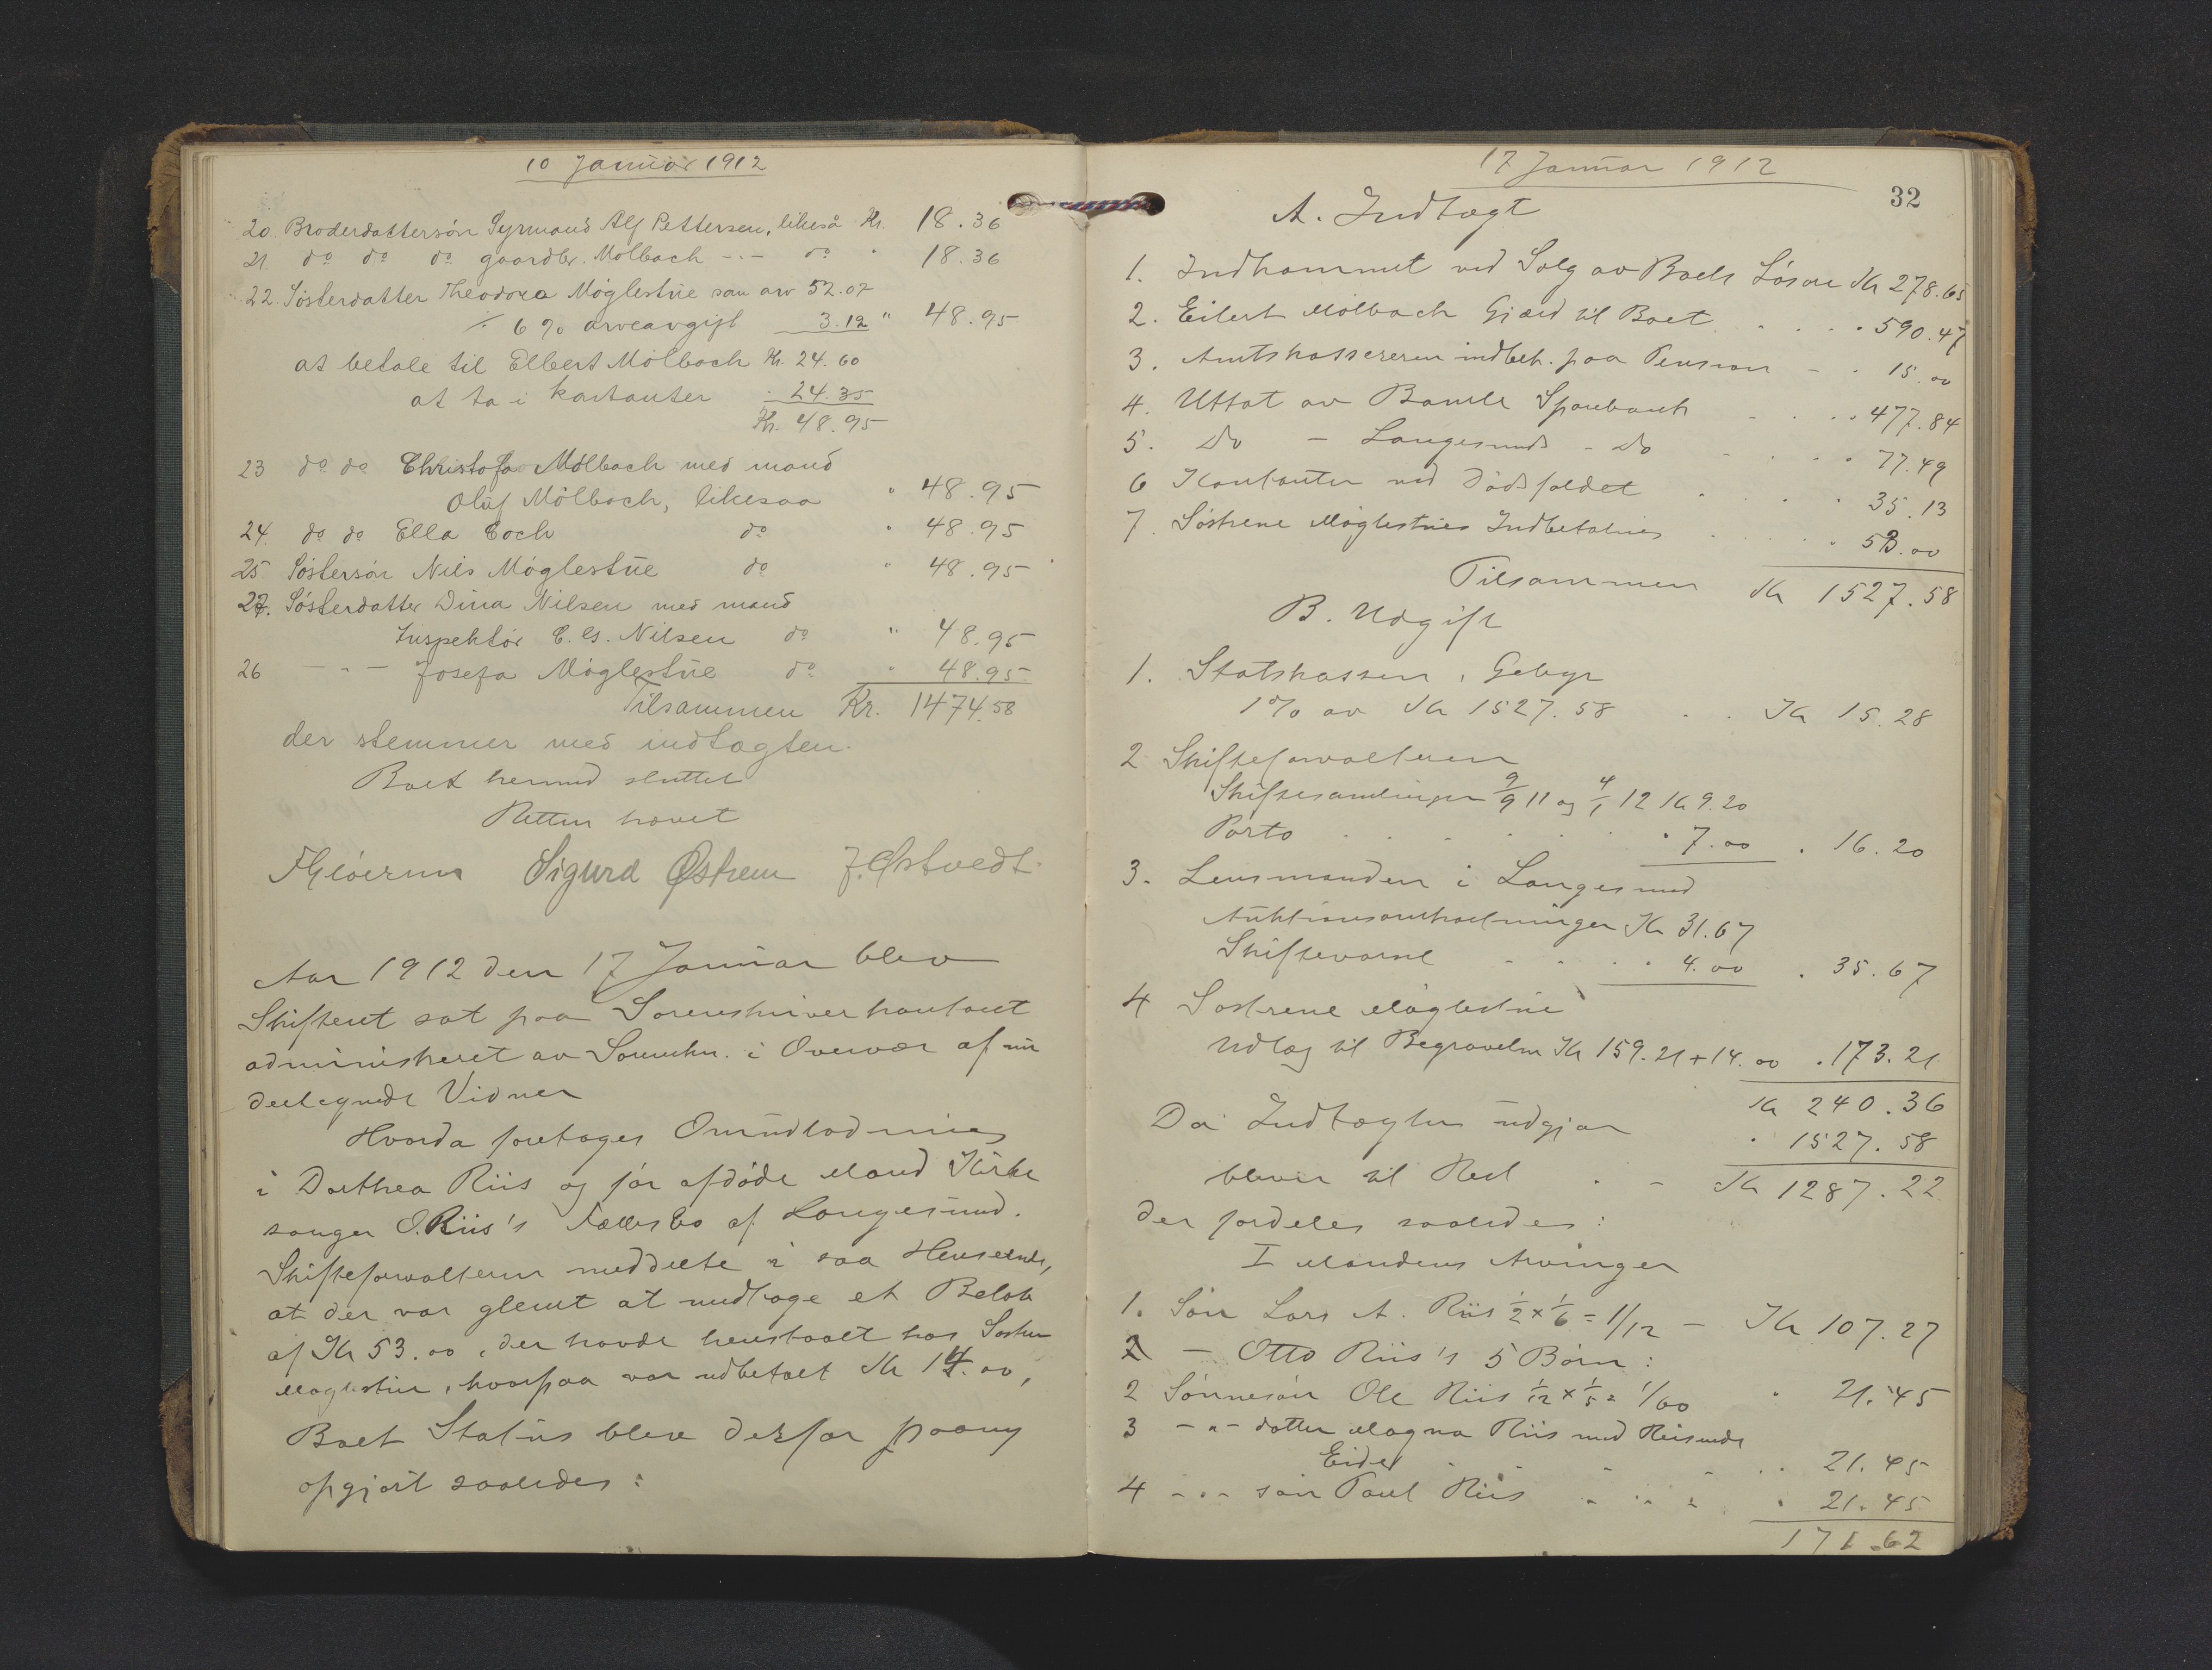 10 Januar 1912
20 Broderdattersön Syrmand Alf Pettersen, likeså Kr. 18.36
21. do do do gaardbr. Mölbach -.- do " 18.36
22. Sösterdatter Theodora Möglestue sau arv 52.07
÷ 6% arveavgift 3.12 " 48.95
at betale til Elbert Mölbach Kr. 24.60
at ta i kontanter " 24.35
Kr. 48.95
23 do do Christofa Mölbach med mand
Oluf Mölbach, likesaa " 48.95
24. do do Ella Coch do " 48.95
25 Söstersön Nils Möglestue do " 48.95
27. Sösterdatter Dina Nilsen med mand
Inspektör C. G. Nilsen do " 48.95
26 - " - Josefa Möglestue do " 48.95
Tilsammen Kr. 1474.58
der stemmer med indtægten.
Boet hermed sluttet
Retten hævet
Sigurd Østrem J. Østvedt
Aar 1912 den 17 Januar blev
Skifteret sat paa Sorenskriverkontoret
administreret av Sorenskr. i Overvær af un
dertegnede Vidner
Hvorda foretages Omudlodning
i Dorthea Riis og før afdøde Mand Kirke
sanger O. Riis's Fællesbo af Langesund.
Skifteforvalteren meddelte i saa Henseende,
at der var glemt at medtage et Beløb
af Kr 53.00, der havde henstaaet hos Søstrene
Møglestue, hvorpaa var udbetalt Kr 14.00,
Boets Status blev derfor paany
opgjort saaledes:
17 Januar 1912
32
A. Indtægt
1. Indkommet ved Salg av Boets Løsøre Kr 278.65
2. Eilert Mölbach Gjæld til Boet . . . . . 590.47
3. Amtskassereren indbet. paa Pension - . 15.00
4. Uttat av Bamle Sparebank - . . . 477.84
5. Do - Langesunds - Do - . . . 77.49
6 Kontanter ved Dødsfaldet . . . . 35.13
7. Søstrene Møglestues Indbetaling . . . . 53.00
Tilsammen Kr 1527.58
B. Udgift
1. Statskassen, Gebyr
1% av Kr 1527.58 . . Kr 15.28
2 Skifteforvalteren
Skiftesamlinger 9/9 11 og 4/1 12 Kr 9.20
Porto . . . . . . 7.00 . 16.20
3. Lensmanden i Langesund
Auktionsomkostninger Kr 31.67
Skiftevarsel - . . . 4.00 . 35.67
4 Søstrene Møglestue
Udlæg til Begravelsen Kr 159.21 + 14.00 . 173.21
Kr 240.36
Da Indtægten udgjør . 1527.58
bliver til Rest . - Kr 1287.22
der fordeles saaledes:
I Mandens Arvinger
1. Søn Lars A. Riis 1/2 x 1/6 = 1/12 - Kr 107.27
2 - Otto Riis's 5 Børn:
2 Sønnesøn Ole Riis 1/12 x 1/5 = 1/60 " 21.45
3 - " - datter Magna Riis med
Eide . . . . . 21.45
4 - " - søn Paul Riis . . . . 21.45
171.62